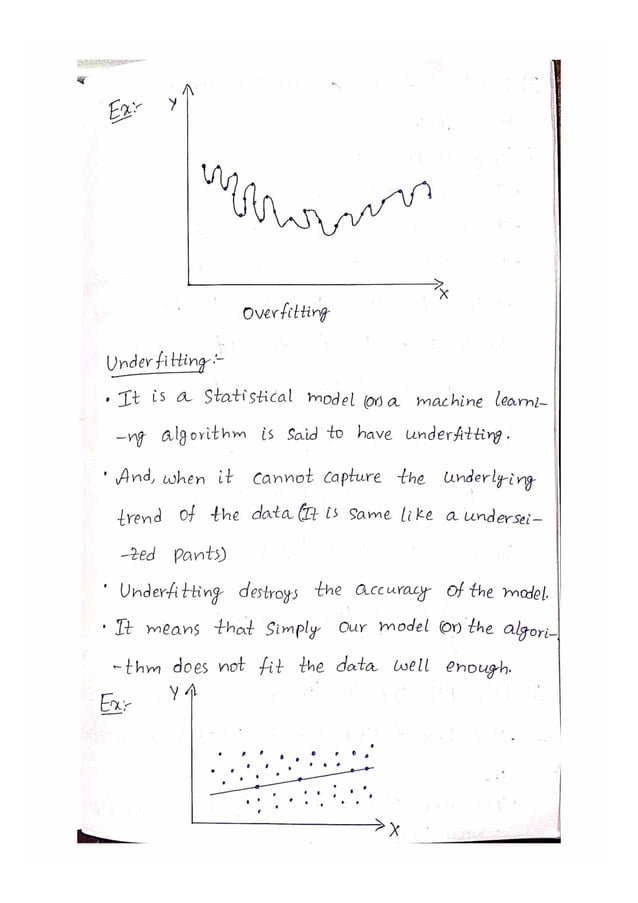 Ex:-
Y
X
Overfitting
Underfitting:-
• It is a Statistical model (or) a machine learni-
-ng algorithm is said to have underfitting.
• And, when it cannot capture the underlying
trend of the data (It is same like a undersei-
-zed pants)
• Underfitting destroys the accuracy of the model.
• It means that simply our model (or) the algori-
-thm does not fit the data well enough.
Ex:-
Y
X